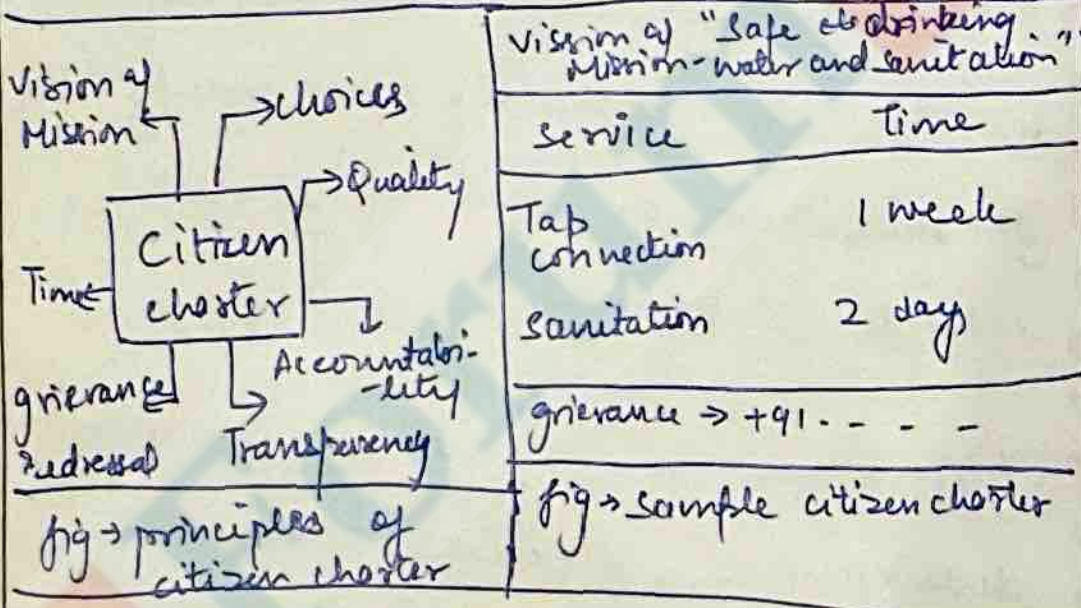 Vision of
Mission
choices
Quality
Citizen
charter
Time
Accountabi-
-lity
grievance
redressal
Transparency
fig → principles of
citizen charter
Vission of "Safe drinking
Mission - water and sanitation"
Service Time
Tap 1 week
connection
Sanitation 2 days
grievance → +91 - - - -
fig → sample citizen charter